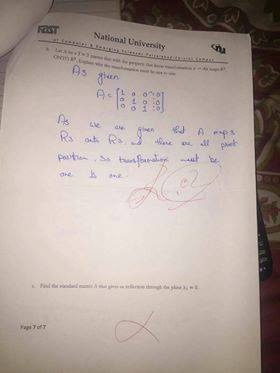 National University
of Computer & Emerging Sciences-Faisalabad-Chiniot Campus
b. Let A be a 3 × 3 matrix that with the property that linear transformation x → Ax maps R³
ONTO R³. Explain why the transformation must be one to one.
As given
A = [1 0 0 : 0
0 1 0 : 0
0 0 1 : 0]
As we are given that A maps
R3 onto R3 and there are all pivot
position. So transformation must be
one to one.
c. Find the standard matrix A that gives us reflection through the plane
Page 7 of 7